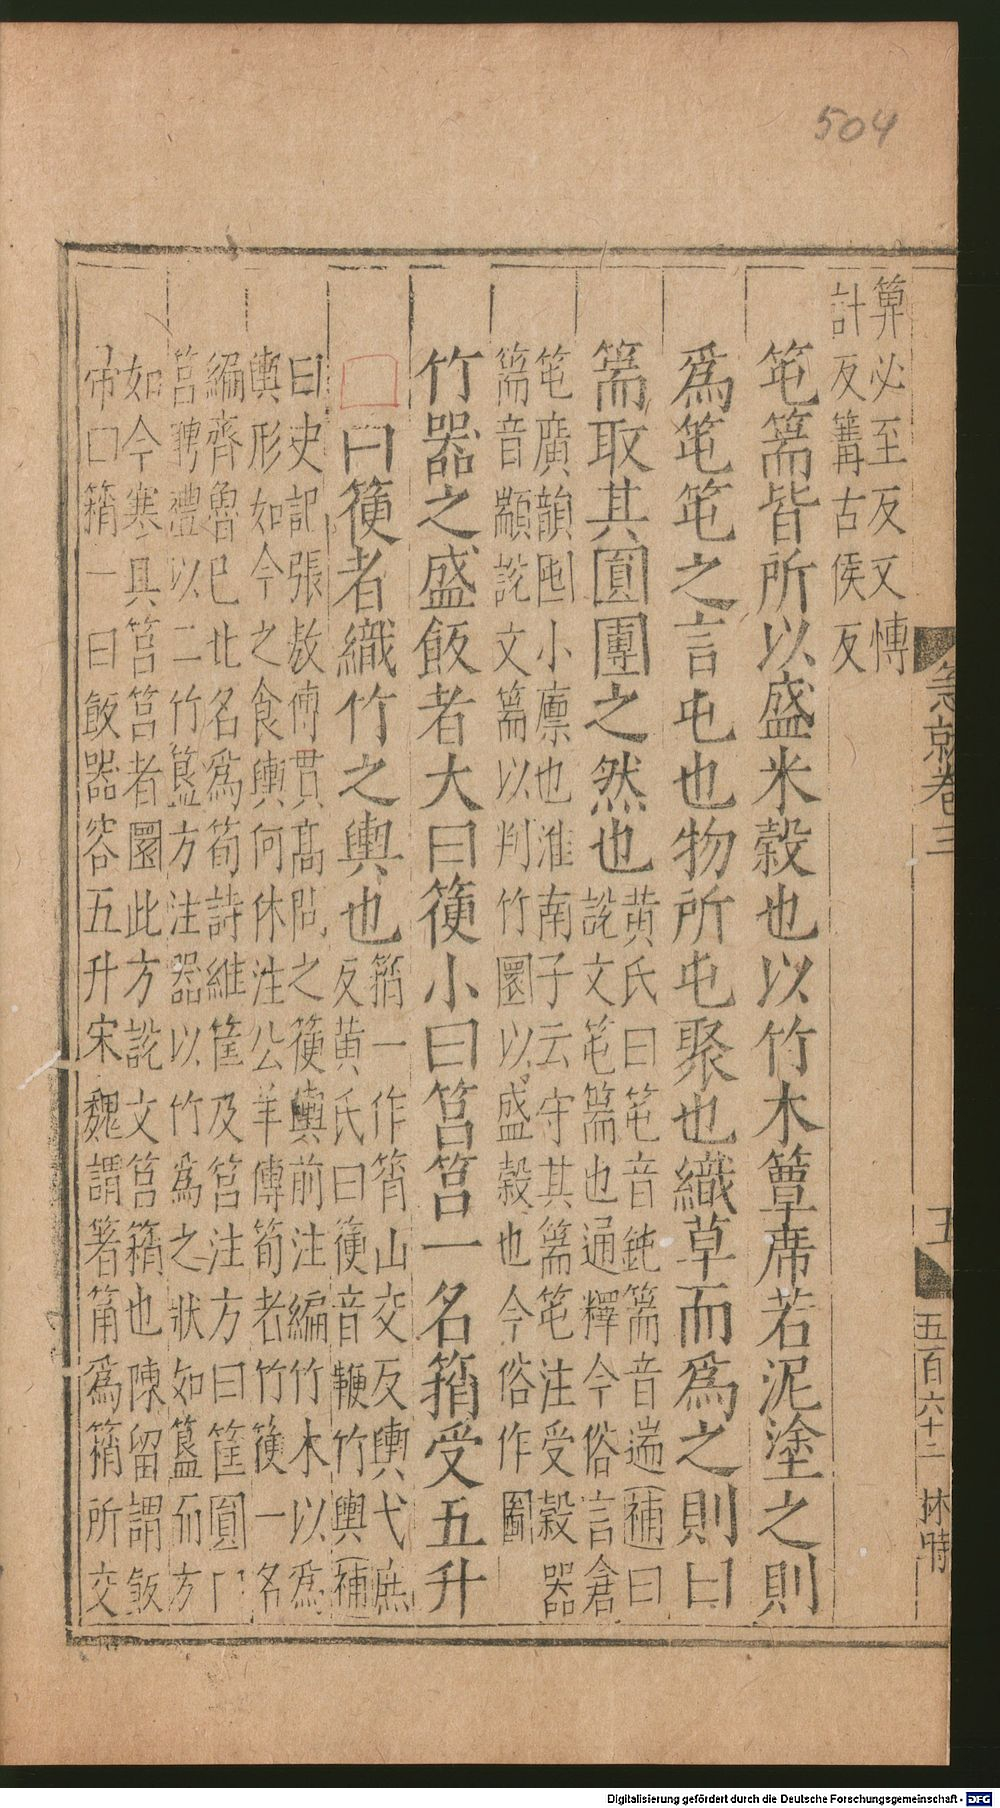 504
箅必至反又慱
計反篝古侯反
笔篅皆所以盛米穀也以竹木簟席若泥塗之則
爲笔笔之言屯也物所屯聚也織草而爲之則曰
篅取其圓團之然也
黄氏曰笔音鈍篅音遄補曰
說文笔篅也通釋今俗言倉
笔廣韻囤小廪也淮南子云守其篅笔注受穀器
篅音顓說文篅以判竹圜以盛穀也今俗作圌
竹器之盛飯者大曰箯小曰筥筥一名䈰受五升
曰箯者織竹之輿也
䈰一作筲山交反輿弋庶
反黄氏曰箯音鞭竹輿補
曰史記張敖傳貫髙問之箯輿前注編竹木以爲
輿形如今之食輿何休注公羊傳筍者竹箯一名
編齊魯已北名爲筍詩維筐及筥注方曰筐圓曰
筥聘禮以二竹簋方注器以竹爲之狀如簋而方
如今寒具筥筥者圜此方說文筥䈰也陳留謂飯
帚曰䈰一曰飯器容五升宋魏謂箸筩爲䈰所交
急就卷三
五
五百六十二
林時
Digitalisierung gefördert durch die Deutsche Forschungsgemeinschaft - DFG